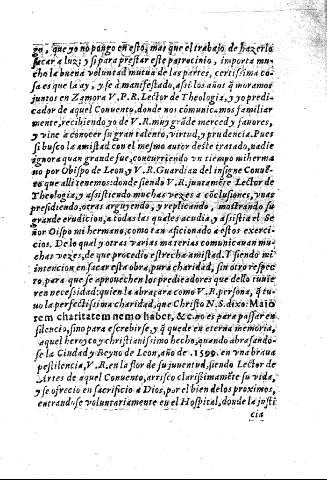 ga, que yo no pongo en esto, mas que el trabajo de hazerlo
sacar a luz; y si para prestar este patrocinio, importa mu-
cho la buena voluntad mutua de las partes, certissima co-
sa es que la ay, y se à manifestado, assi los años q̃ moramos
juntos en Zamora V.P.R. Lector de Theologia, y yo predi-
cador de aquel Conuento, donde nos comunicamos familiar
mente, recibiendo yo de V.R. muy grãde merced y fauores,
y vine a conocer su gran talento, virtud, y prudencia. Pues
si busco la amistad con el mesmo autor deste tratado, nadie
ignora quan grande fue, concurriendo un tiempo mi herma
no por Obispo de Leon, y V.R. Guardian del insigne Conuẽ-
to que alli tenemos: donde siendo V.R. juntamẽte Lector de
Theologia, y assistiendo muchas vezes a cõclusiones, vnas
presidiendo, otras arguyendo, y replicando, mostrando su
grande erudicion, a todas las quales acudia, y assistia el Se-
ñor Oispo mi hermano, como tan aficionado a estos exerci-
cios. De lo qual y otras varias materias comunicauan mu-
chas vezes, de que procedio estrecha amistad. Y siendo mi
intencion en sacar esta obra, pura charidad, sin otro respec-
to, para que se aprouechen los predicadores que dello tuuie
ren necessidad; quien la abraçara como V.R. persona, q̃ tu-
uo la perfectissima charidad, que Christo N.S. dixo: Maio
rem charitatem nemo habet, &c. no es para passar en
silencio, sino para escrebirse, y q̃ quede en eterna memoria,
aquel heroyco y christianissimo hecho, quando abrasando-
se la Ciudad y Reyno de Leon, año de .1599. en vna braua
pestilencia, V.R. en la flor de su juuentud, siendo Lector de
Artes de aquel Conuento, arrisco clarissimamẽte su vida,
y se ofrecio en sacrificio a Dios, por el bien de los proximos,
entrandose voluntariamente en el Hospital, donde la justi
cia